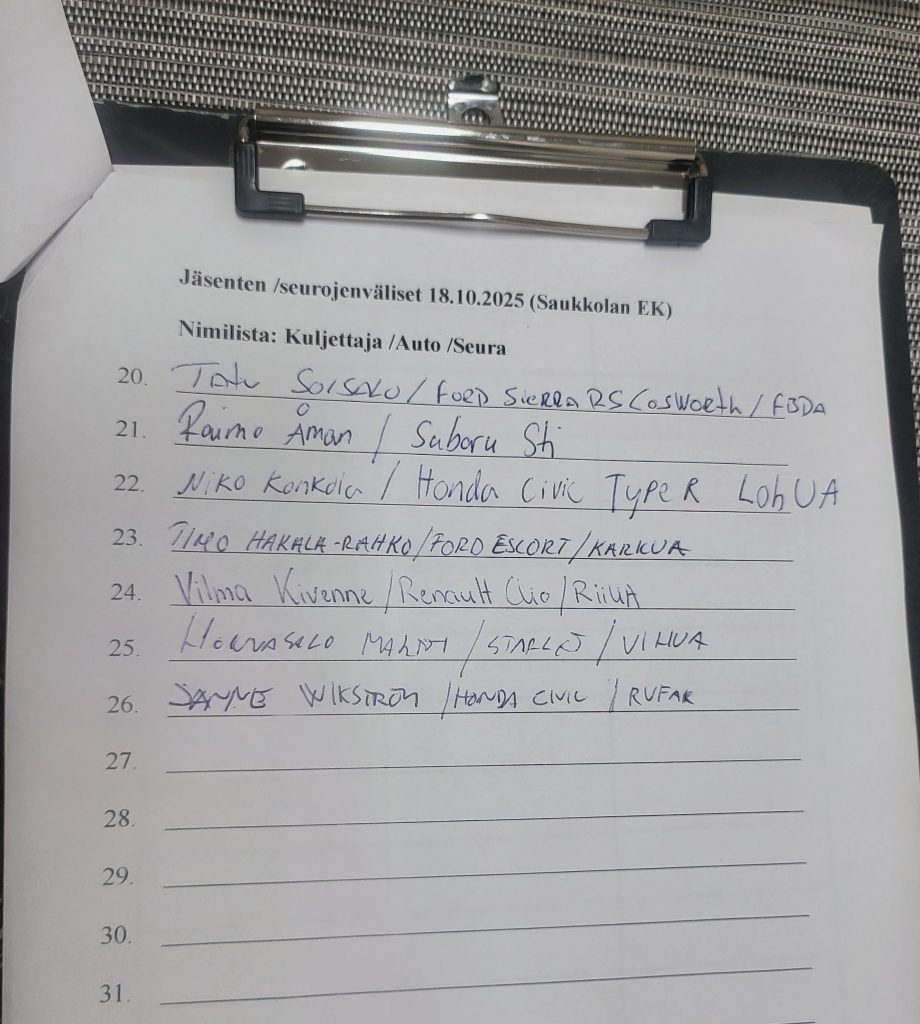 Jäsenten /seurojenväliset 18.10.2025 (Saukkolan EK)
Nimilista: Kuljettaja /Auto /Seura
20. Tatu Soisalo / FORD SIERRA RS COSWORTH / FBDA
21. Raimo Åman / Subaru Sti
22. Niko Konkola / Honda Civic Type R LohUA
23. TIMO HAKALA-RAHKO/FORD ESCORT/KARKUA
24. Vilma Kivenne/Renault Clio/RiiUA
25. MARTTI / STARLET / VIHUA
26. JANNE WIKSTRÖM / HONDA CIVIC / RUFAR
27.
28.
29.
30.
31.